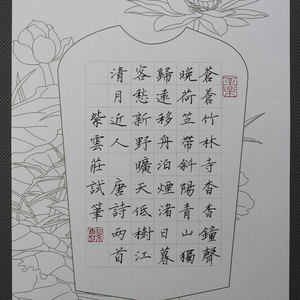 蒼蒼竹林寺杳杳鐘聲
晚荷笠帶斜陽青山獨
歸遠移舟泊煙渚日暮
客愁新野曠天低樹江
清月近人 唐詩两首
紫雲莊試筆